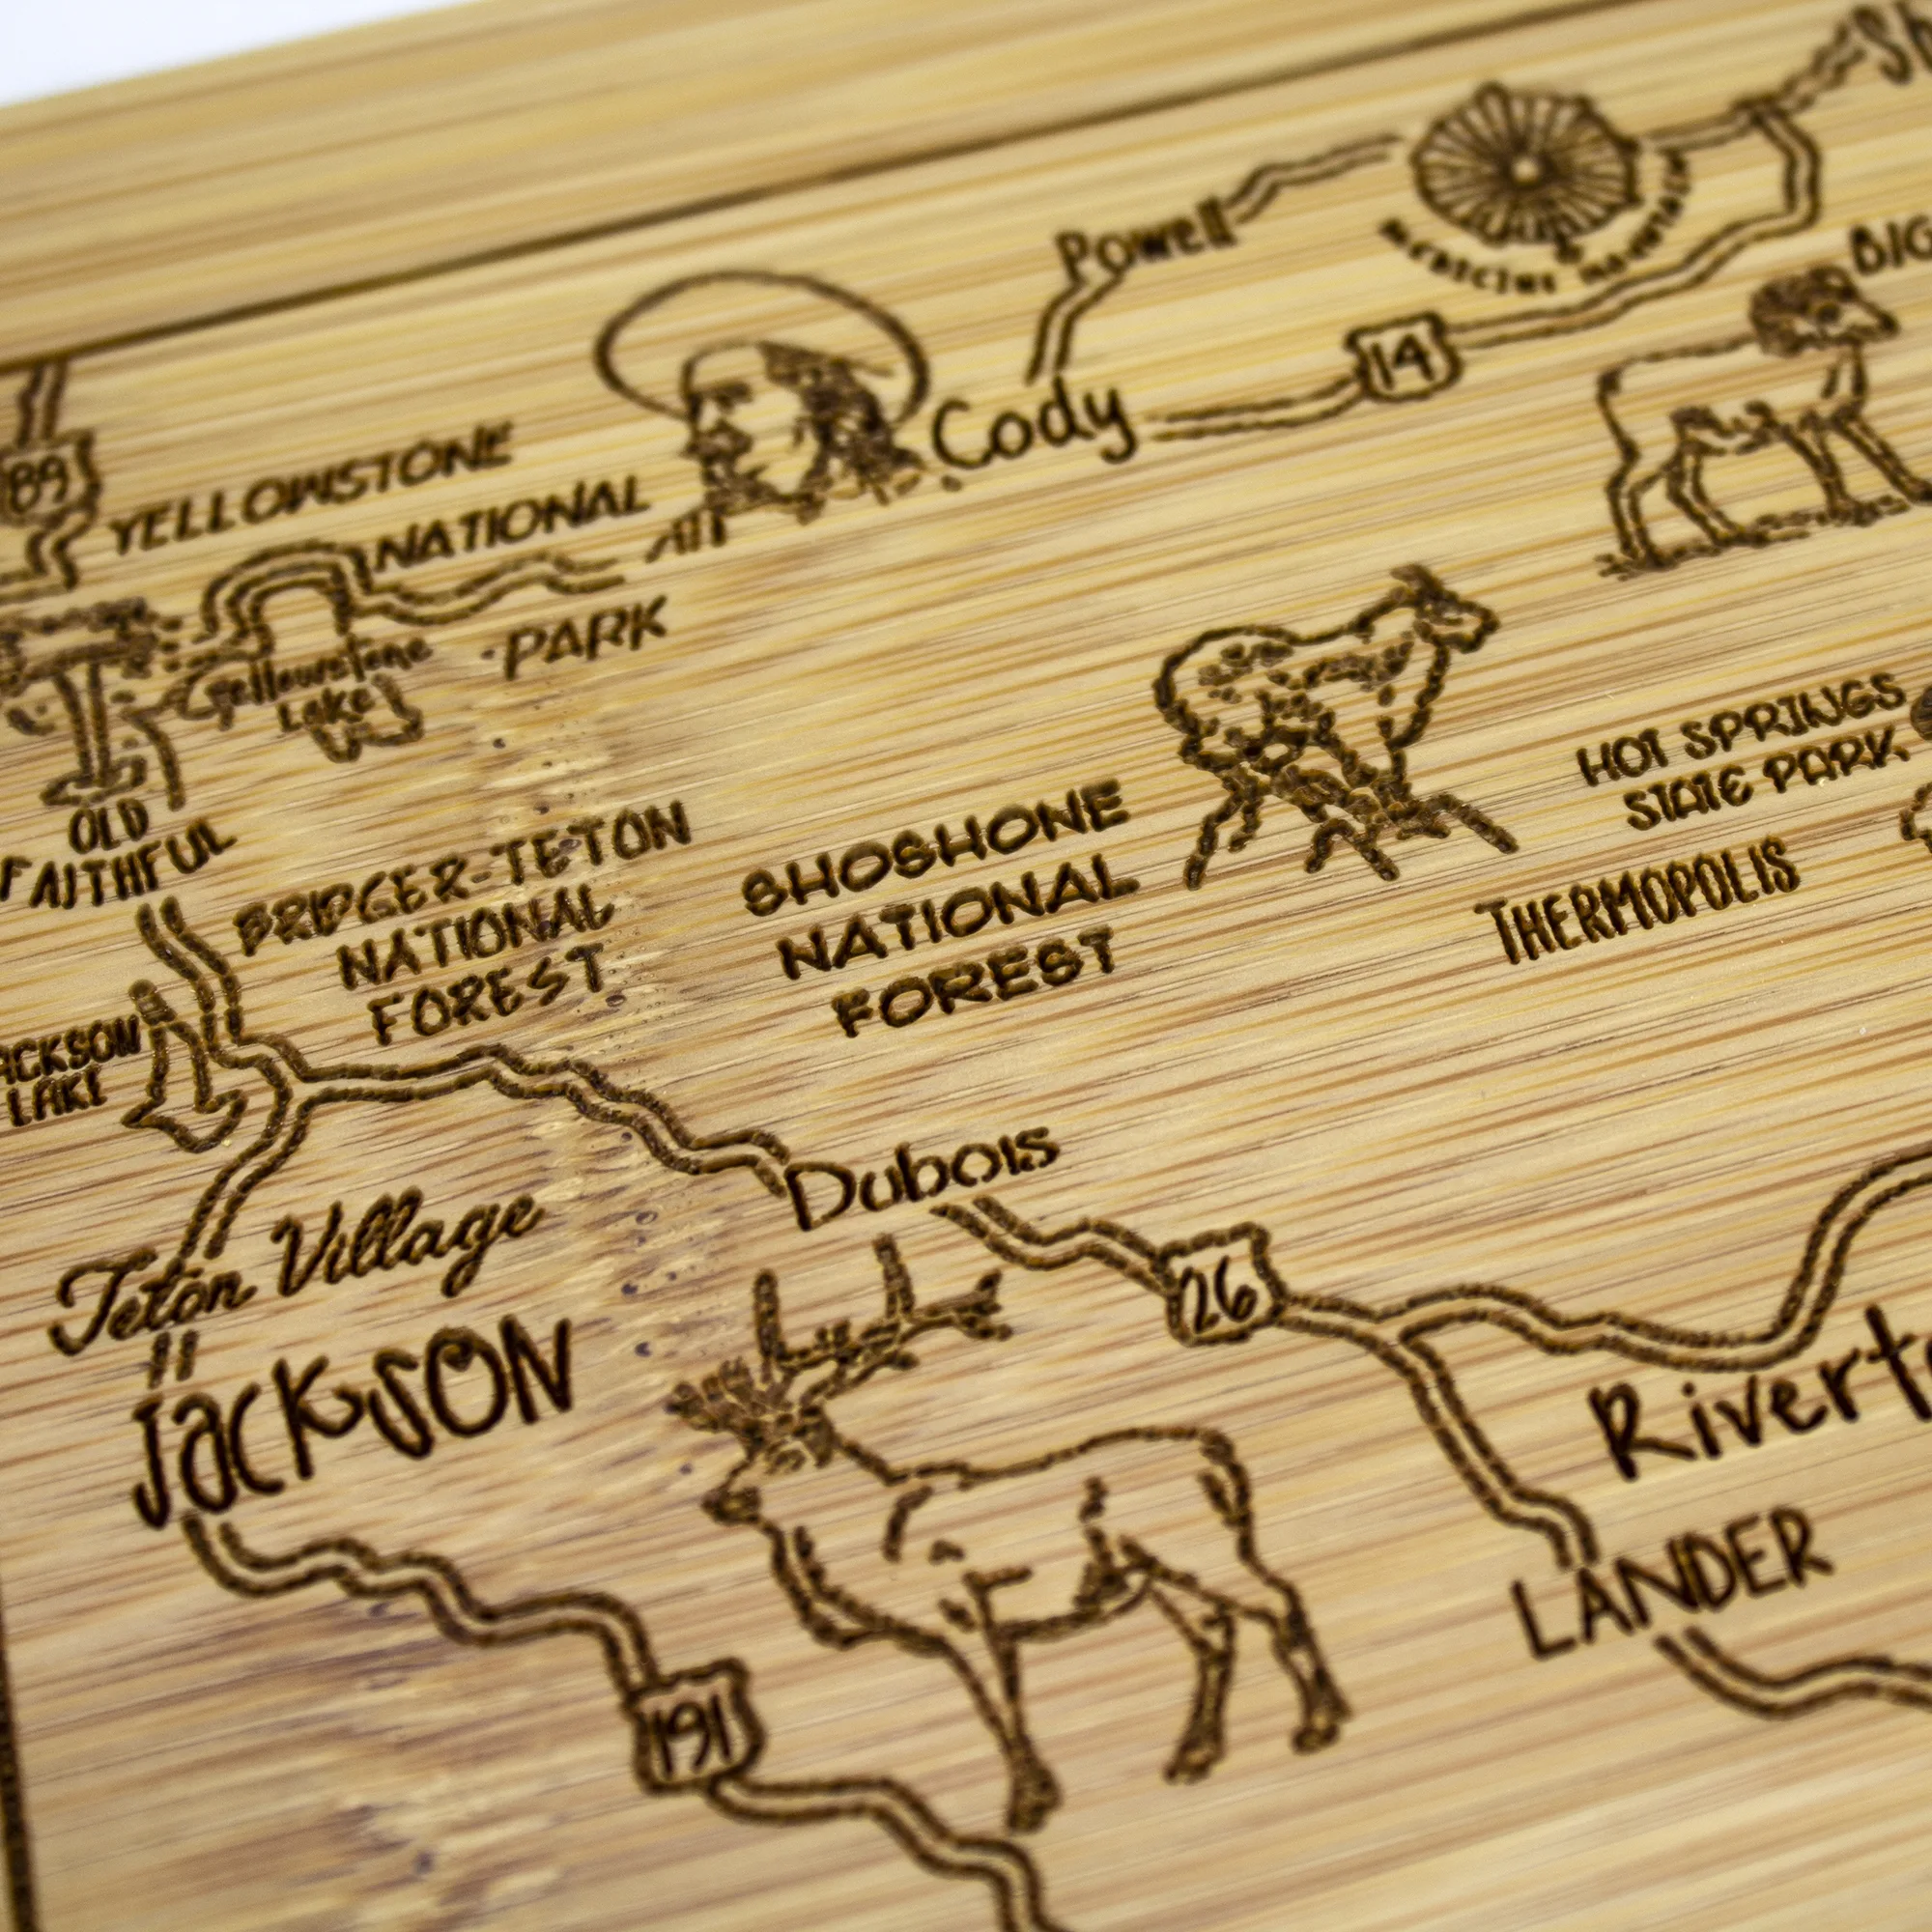 Sh
Powell
MEDICINE MOUNTAIN
BIG
14
Cody
89
YELLOWSTONE
NATIONAL
PARK
Yellowstone
Lake
OLD
FAITHFUL
HOT SPRINGS
STATE PARK
THERMOPOLIS
BRIDGER-TETON
NATIONAL
FOREST
SHOSHONE
NATIONAL
FOREST
ACKSON
LAKE
Dubois
Teton Village
26
JacksON
Riverto
LANDER
191